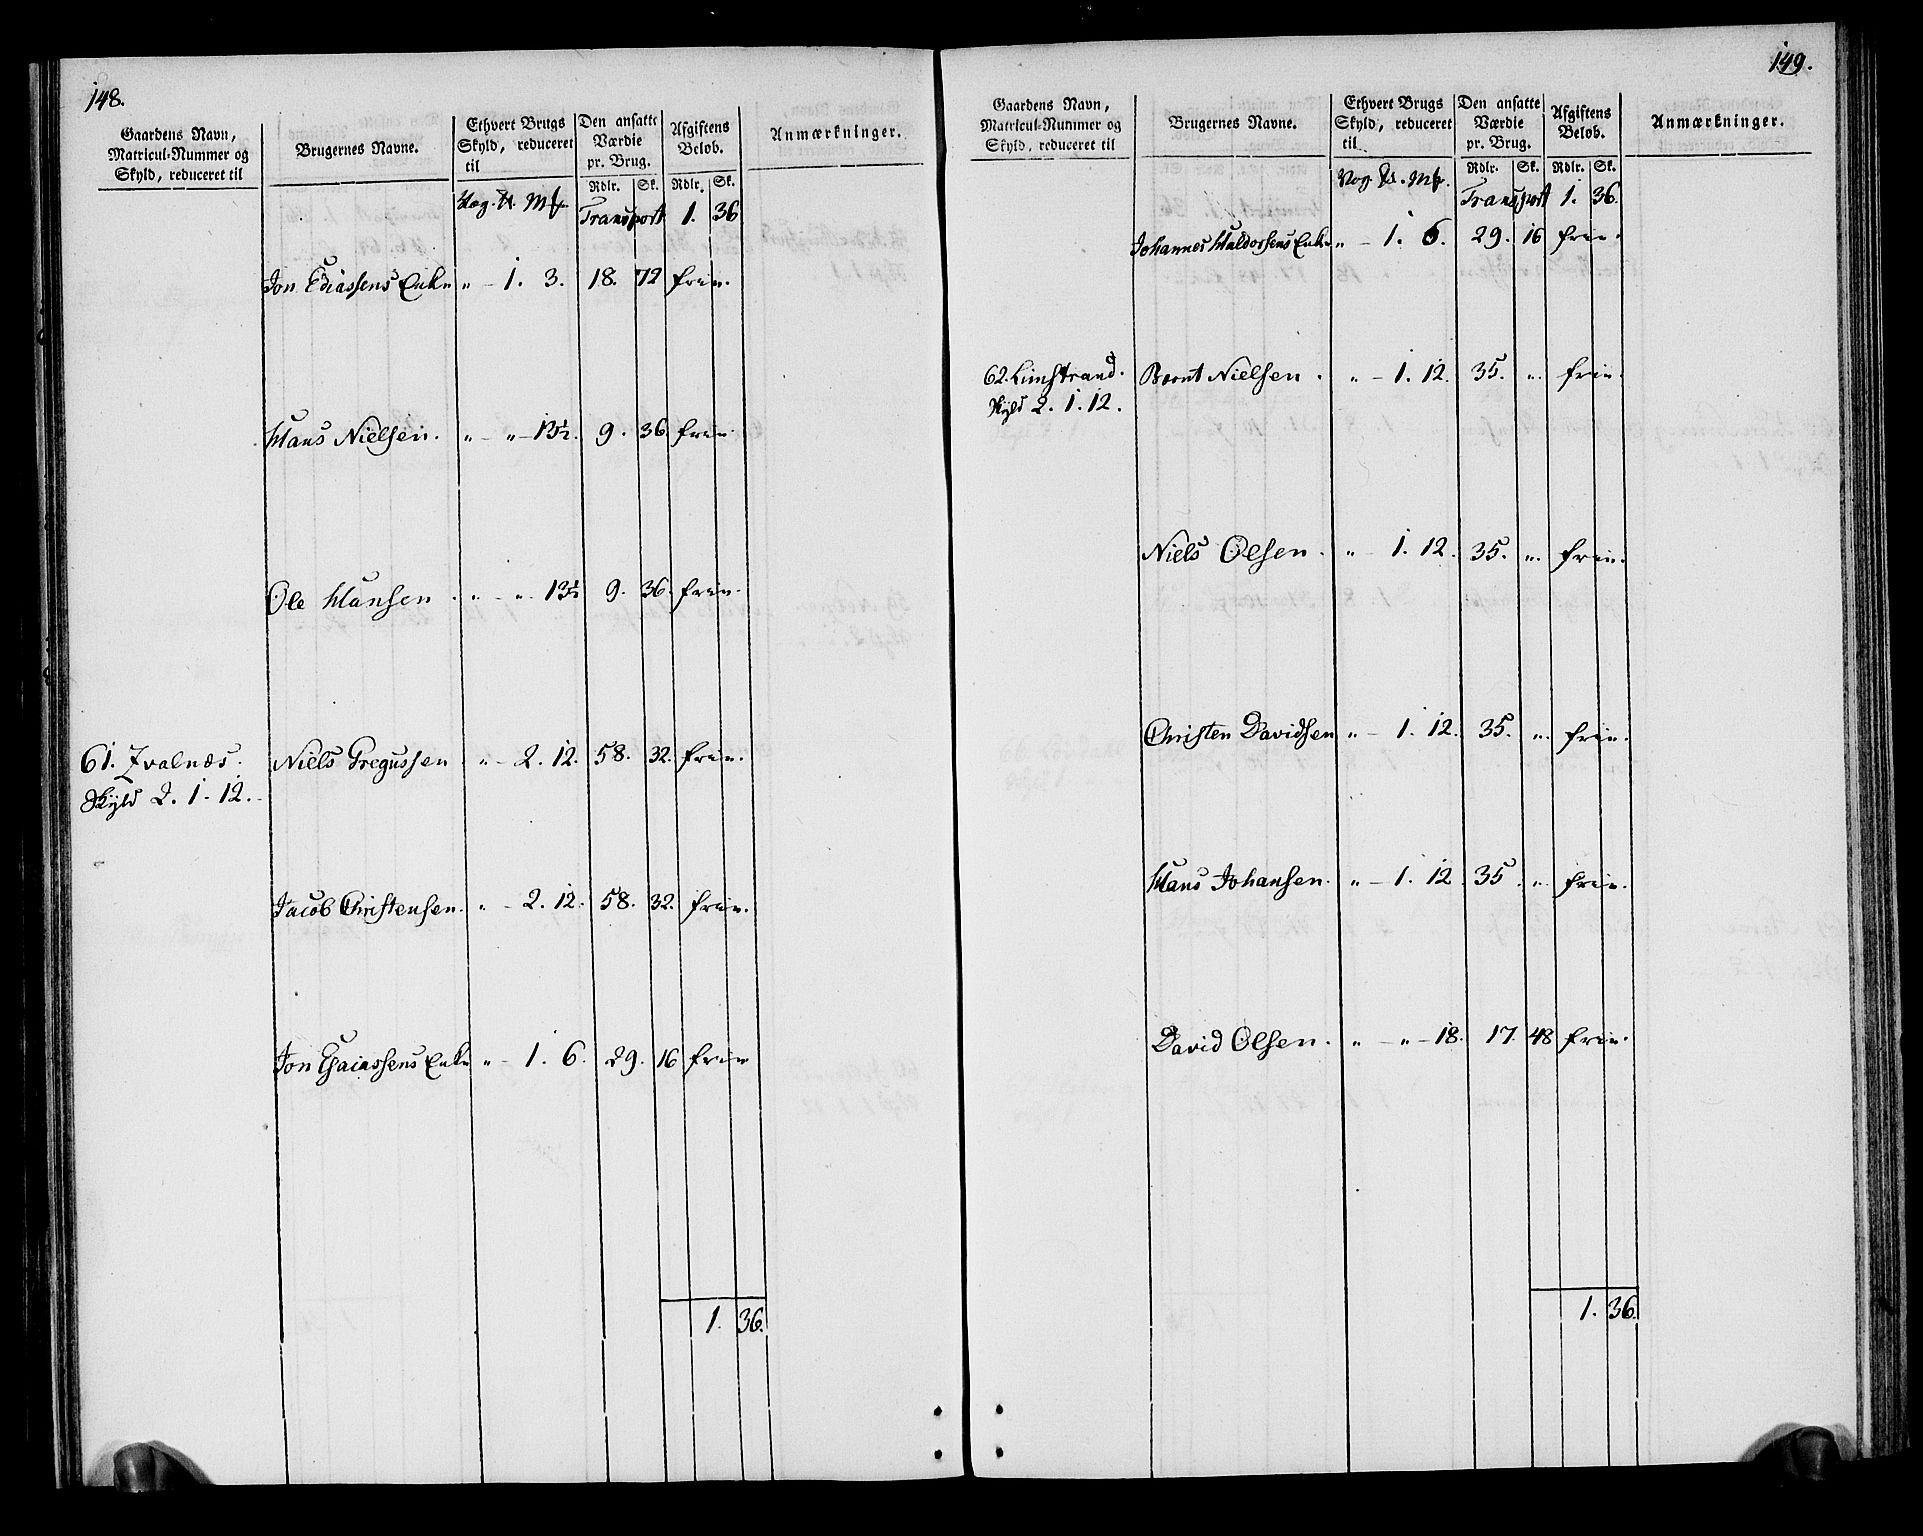 148.
Gaardens Navn, Matricul-Nummer og Skyld, reduceret til | Brugernes Navne. | Ethvert Brugs Skyld, reduceret til | Den ansatte Værdie pr. Brug. | Afgiftens Beløb. | Anmærkninger.
Rdlr. Sk. Rdlr. Sk.
Vog. Mk.
Transport 1. 36
Jon Esiassens Enke " - 1. 3. 18. 72 frie.
Hans Nielsen. " - " - 13½. 9. 36. frie.
Ole Hansen. " - " - 13½ 9. 36. frie.
61. Ivalnæs. Niels Gregussen " - 2. 12. 58. 32. frie.
Skyld 2. 1. 12.
Jacob Christensen. " - 2. 12. 58. 32. frie.
Jon Esaiassens Enke " - 1. 6. 29. 16 frie
1. 36.
149.
Gaardens Navn, Matricul-Nummer og Skyld, reduceret til | Brugernes Navne. | Ethvert Brugs Skyld, reduceret til | Den ansatte Værdie pr. Brug. | Afgiftens Beløb. | Anmærkninger.
Rdlr. Sk. Rdlr. Sk.
Vog. Mk.
Transport 1. 36.
Johannes Haldorsens Enke " - 1. 6. 29. 16 frie.
62. Limstrand. Bernt Nielsen. " - 1. 12. 35. " frie.
Skyld 2. 1. 12.
Niels Olsen. " - 1. 12. 35. " frie.
Christen Davidsen " - 1. 12. 35. " frie.
Hans Johansen. " - 1. 12. 35. " frie.
David Olsen. " - " - 18. 17. 48 frie.
1. 36.